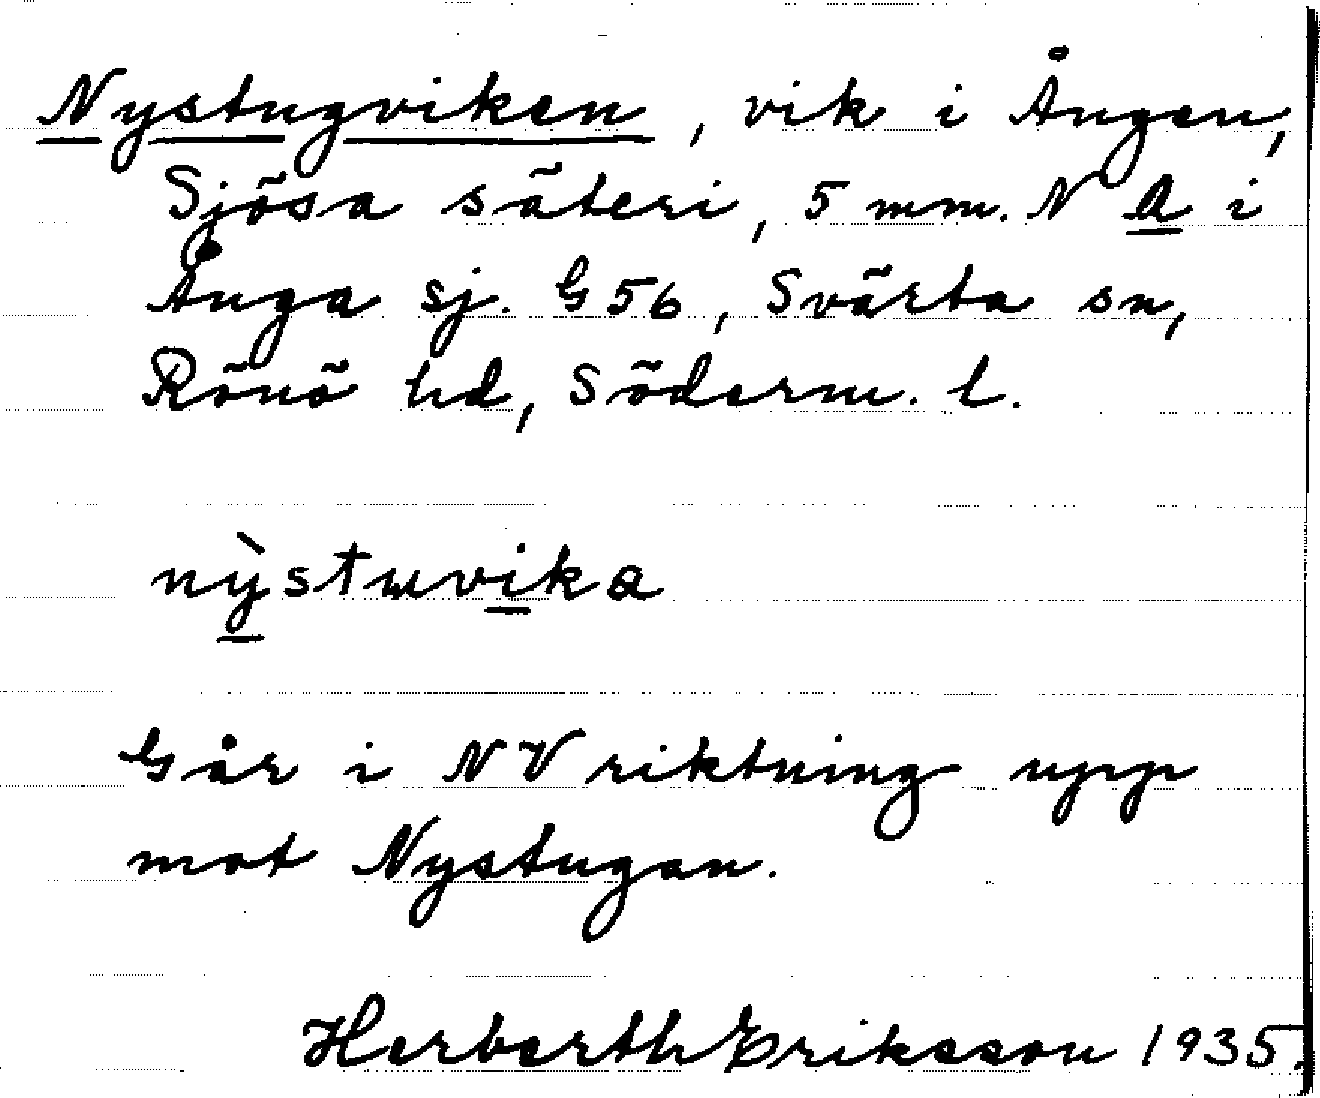 Nystugviken, vik i Ången,
Sjösa säteri, 5 mm. N a i
Ånga sj. G 56, Svärta sn,
Rönö hd, Söderm. l.
nỳstuvika
Går i NV riktning upp
mot Nystugan.
Herberth Eriksson 1935.